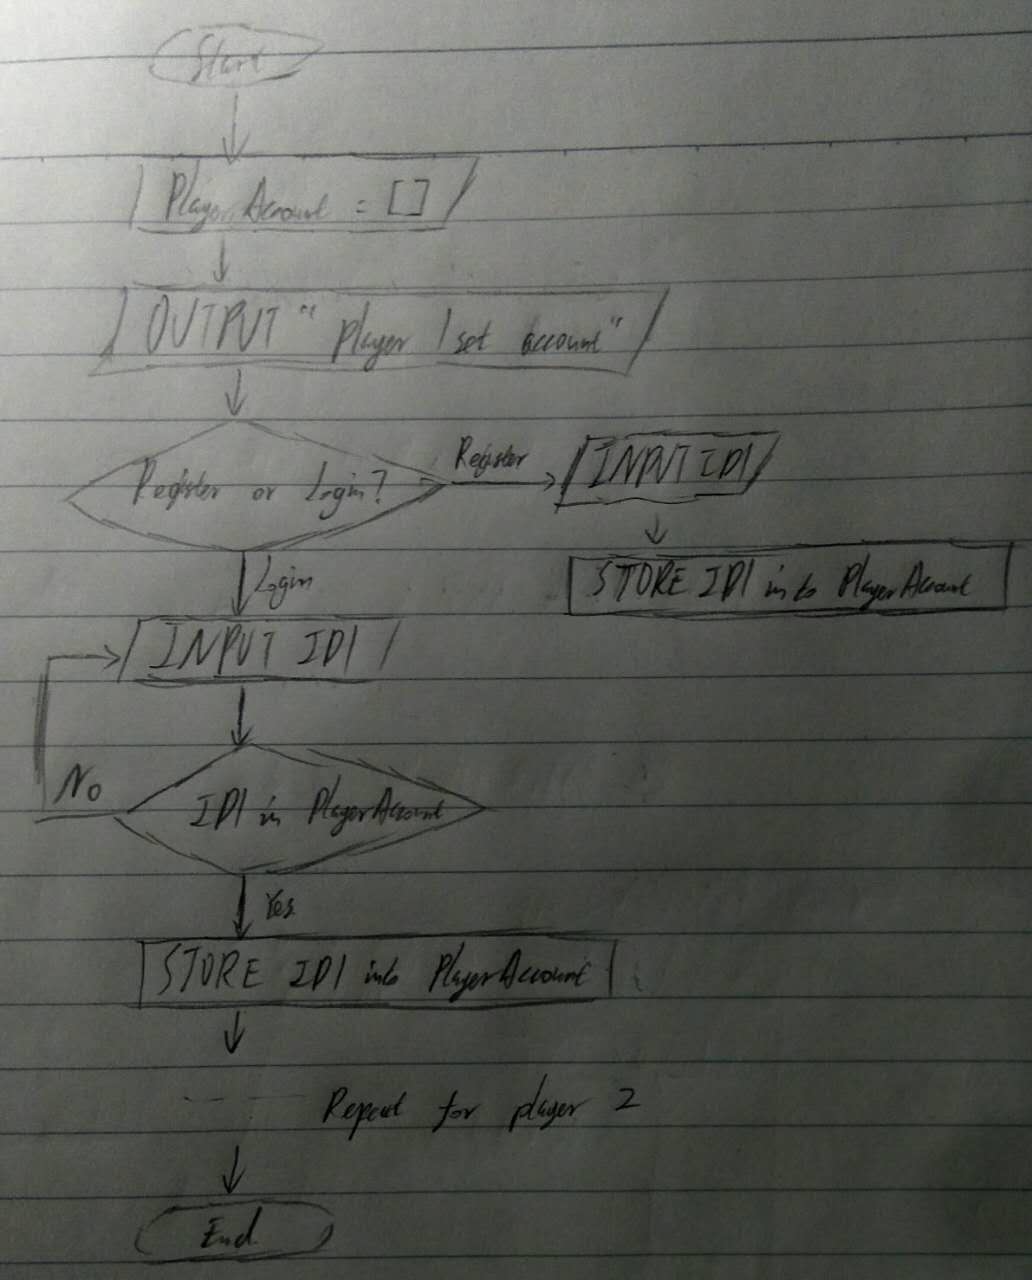 Start
PlayerAccount = []
OUTPUT "player 1 set account"
Register or Login?
Register
INPUT ID1
STORE ID1 into PlayerAccount
Login
INPUT ID1
No
ID1 in PlayerAccount
Yes
STORE ID1 into PlayerAccount
Repeat for player 2
End